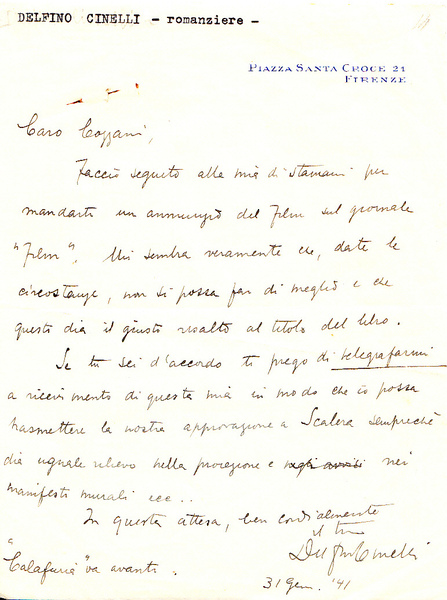 DELFINO CINELLI - romanziere -
PIAZZA SANTA CROCE 21
FIRENZE
Caro Cozzani,
Faccio seguito alla mia di stamani per
mandarti un annunzio del Film sul giornale
"Film". Mi sembra veramente che, date le
circostanze, non si possa far di meglio e che
questo dia il giusto risalto al titolo del libro.
Se tu sei d'accordo ti prego di telegrafarmi
a ricevimento di questa mia in modo che io possa
trasmettere la nostra approvazione a Scalera sempreché
dia uguale rilievo nella proiezione e negli avvisi nei
manifesti murali ecc..
In questa attesa, ben cordialmente
il tuo
Delfino Cinelli
"Calafuria" va avanti.
31 Gen. '41